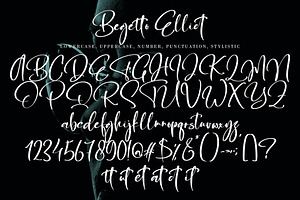 Begotti Elliot
LOWERCASE, UPPERCASE, NUMBER, PUNCTUATION, STYLISTIC
ABCDEFGHIJKLMN
OPQRSTUVWXYZ
abcdefghijklmnopqrstuvwxyz
1234567890!@#$%&*()